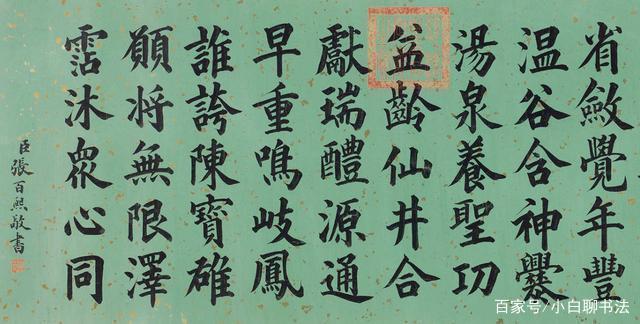 省斂覺年豐
温谷含神爨
湯泉養聖功
益齡仙井合
獻瑞醴源通
早重鳴岐鳳
誰誇陳寶雄
願将無限澤
霑沐眾心同
臣張百熙敬書
百家号/小白聊书法